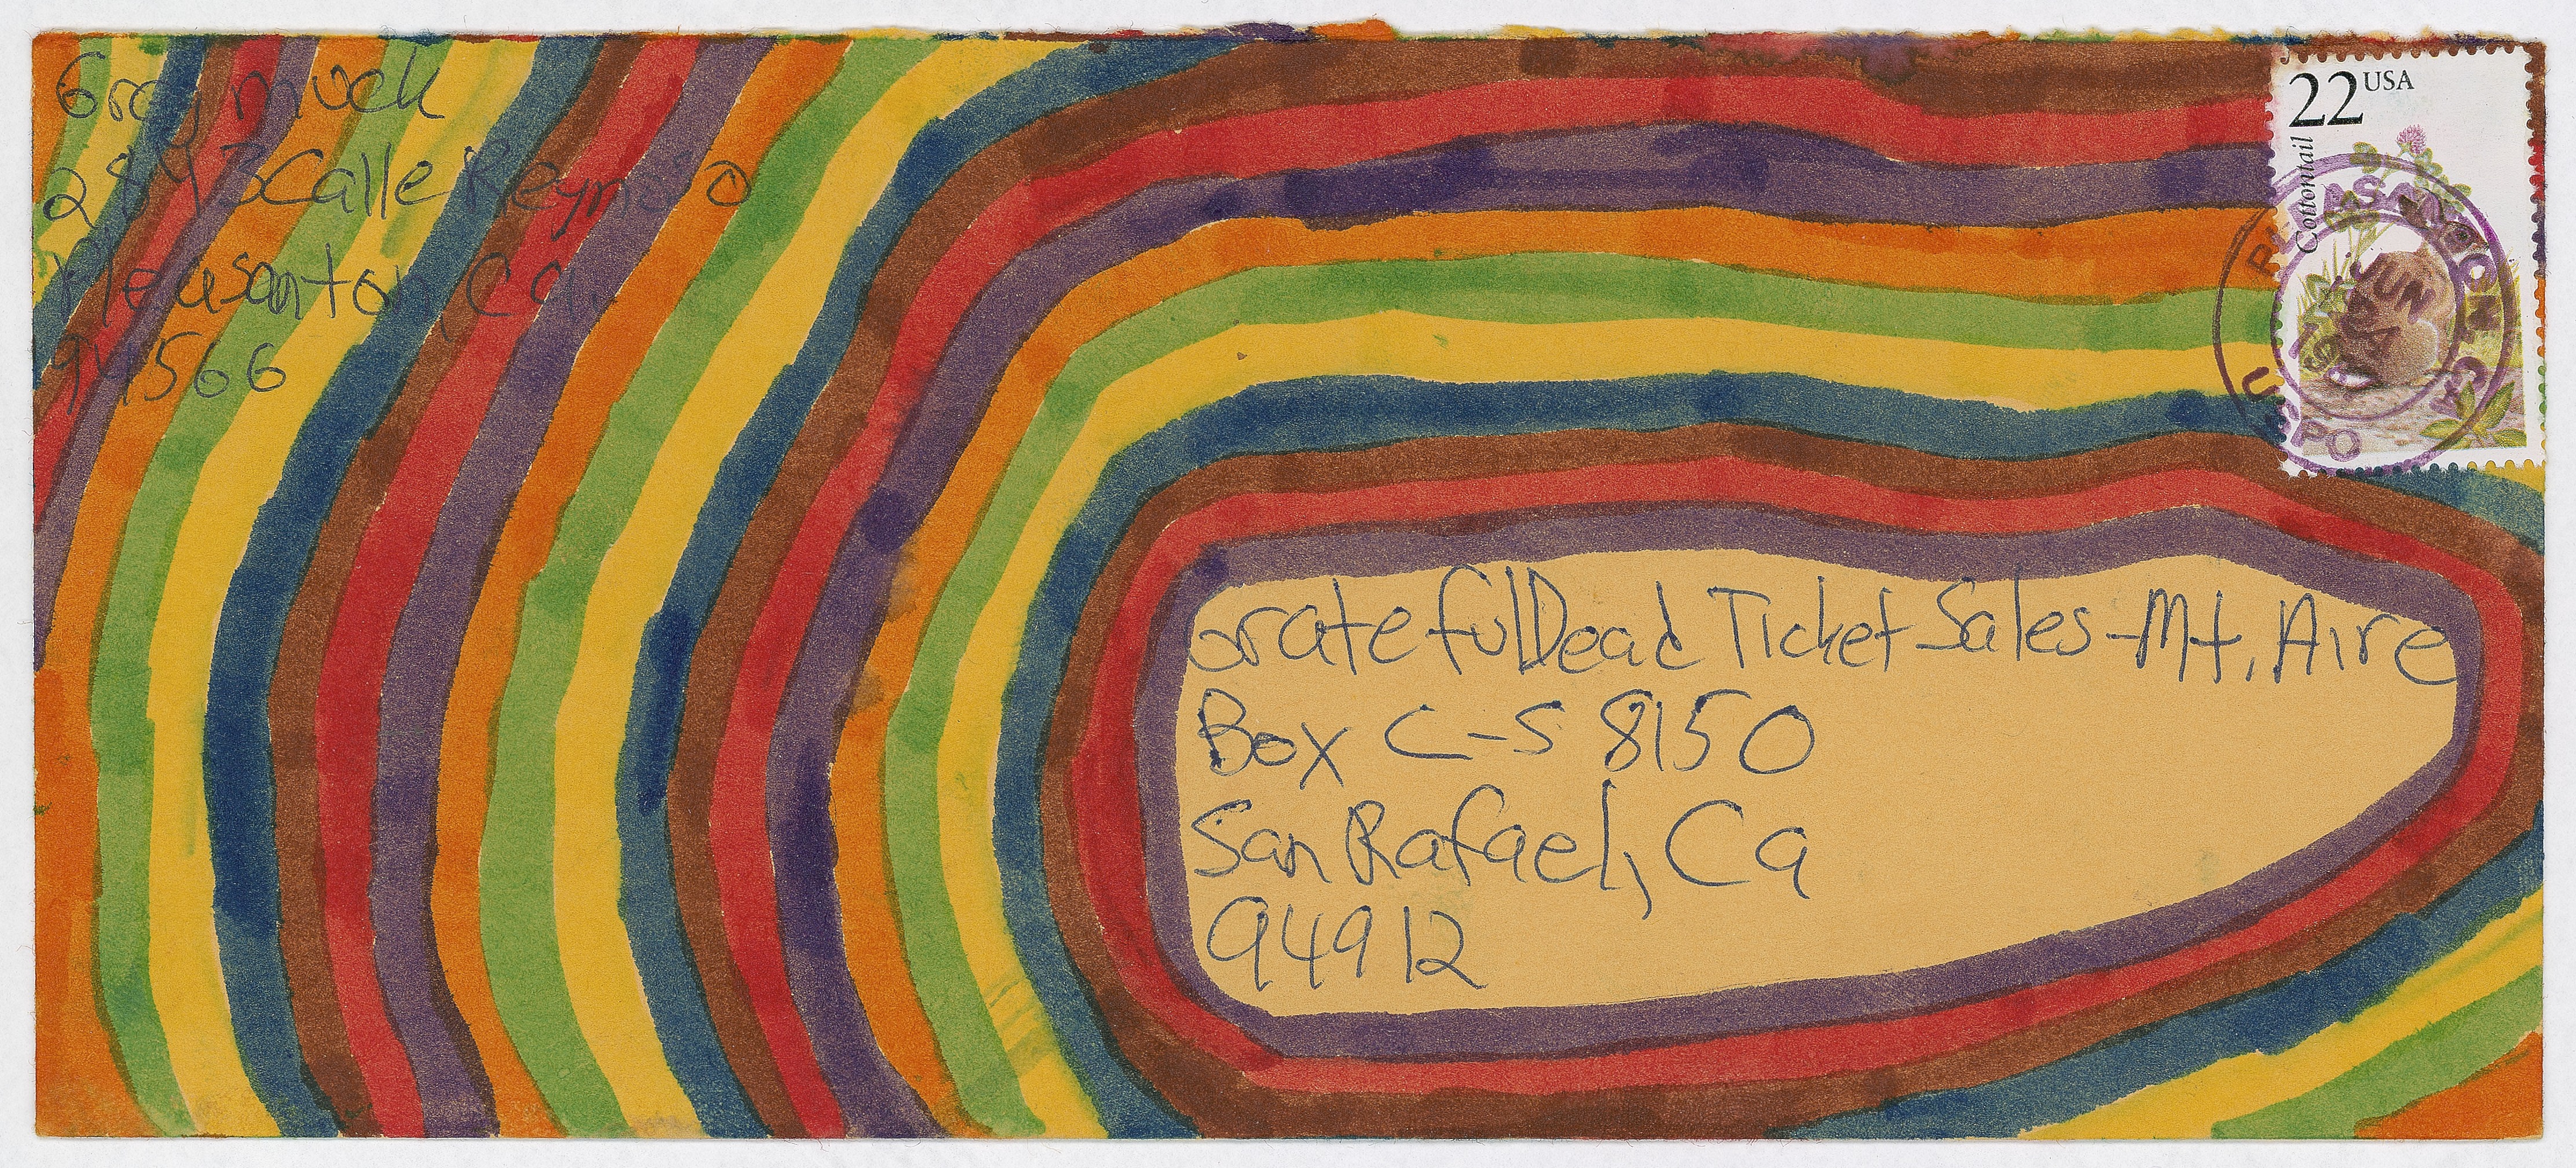 Greg muck
2843 Calle Reynoso
Pleasanton, Ca.
94566
22 USA
Cottontail
PLEASANTON CA
JUN
USPO
Grateful Dead Ticket Sales - Mt. Aire
Box C-S 8150
San Rafael, Ca
94912